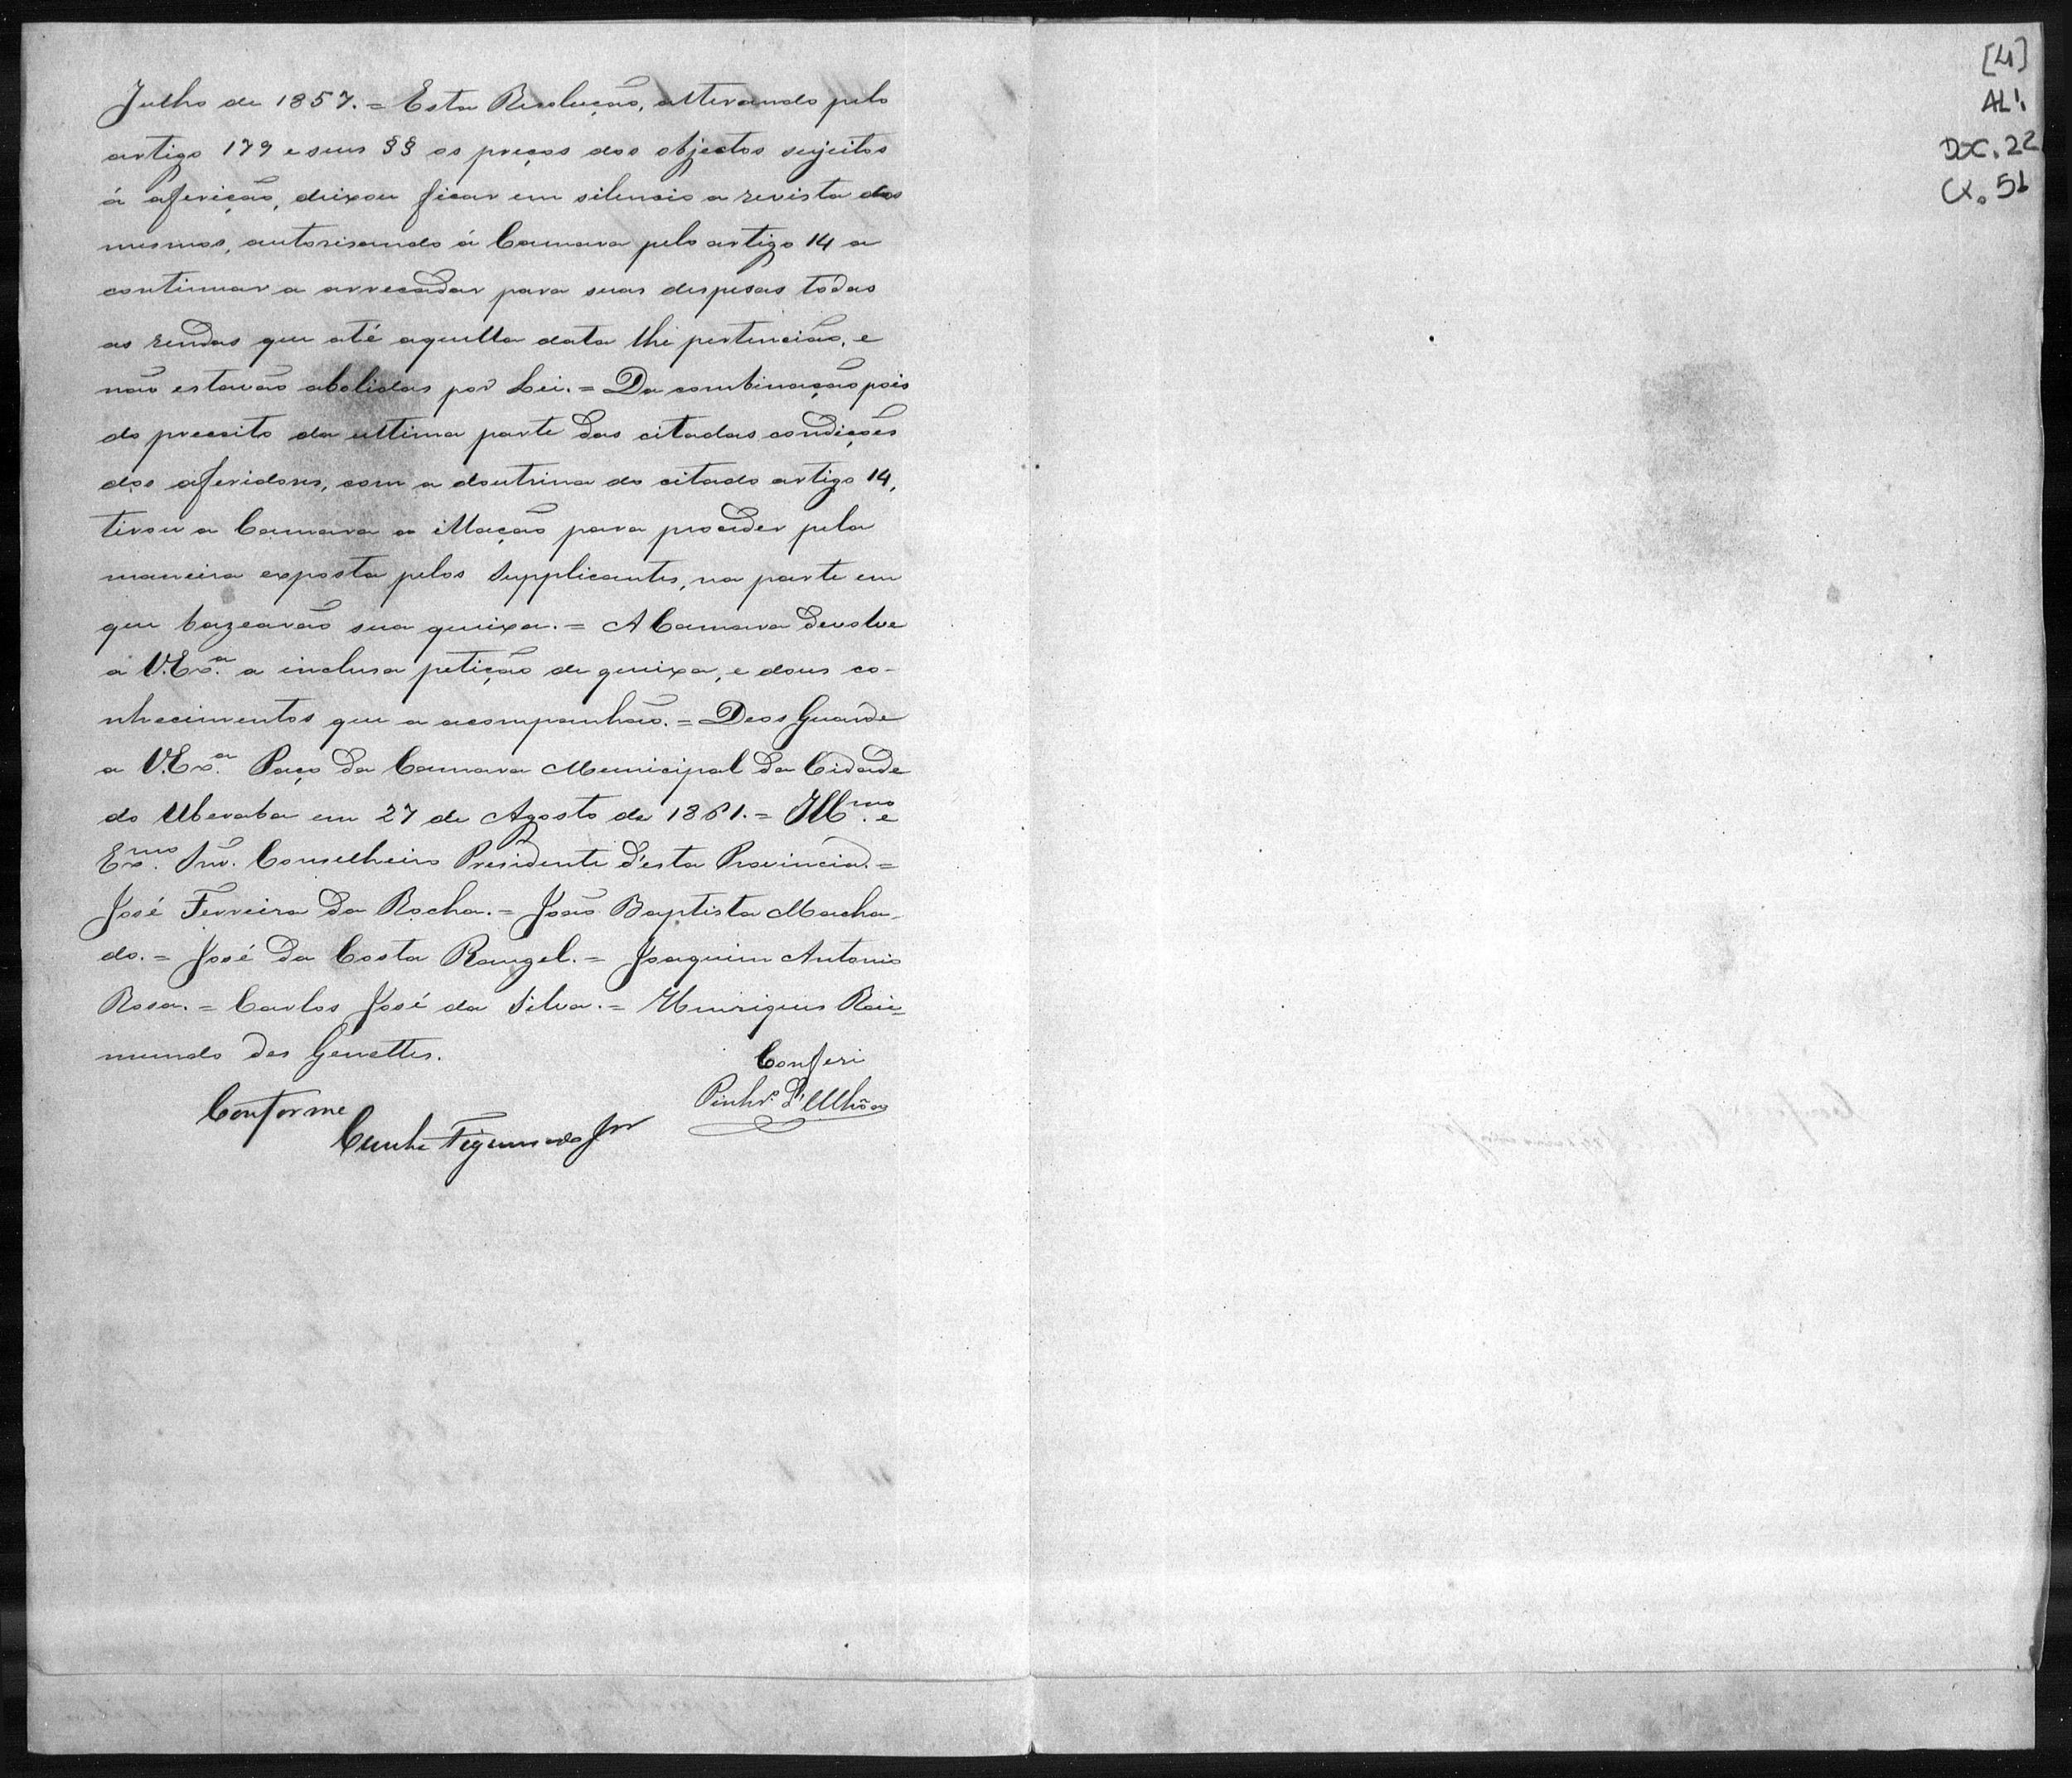 Julho de 1857. = Esta Resolução, alterando pelo
artigo 179 e seus §§ os preços dos objectos sujeitos
á aferição, deixou ficar em silencio a revista dos
mesmos, autorisando á Camara pelo artigo 14 a
continuar a arrecadar para suas despesas todas
as rendas que até aquella data lhe pertencião, e
não estavão abolidas por Lei. = Da combinação pois
do preceito da ultima parte das citadas condições
dos aferidores, com a doutrina do citado artigo 14,
tirou a Camara a illação para proceder pela
maneira exposta pelos Supplicantes, na parte em
que bazearão sua queixa. = A Camara devolve
a V.Ex.ª a inclusa petição de queixa, e dous co-
nhecimentos que a acompanhão. = Deos Guarde
a V.Ex.ª Paço da Camara Municipal da Cidade
do Uberaba em 27 de Agosto de 1861. = Ill.mo e
Ex.mo Snr. Conselheiro Presidente d'esta Provincia. =
José Ferreira da Rocha. = João Baptista Macha-
do. = José da Costa Rangel. = Joaquim Antonio
Rosa. = Carlos José da Silva. = Henriques Rai=
mundo des Genettes.
Conferi
Pinhr.o d'Ulhôa
Conforme
Cunha Figueiredo Jor
[4]
AL1.
DOC. 22
CX. 51